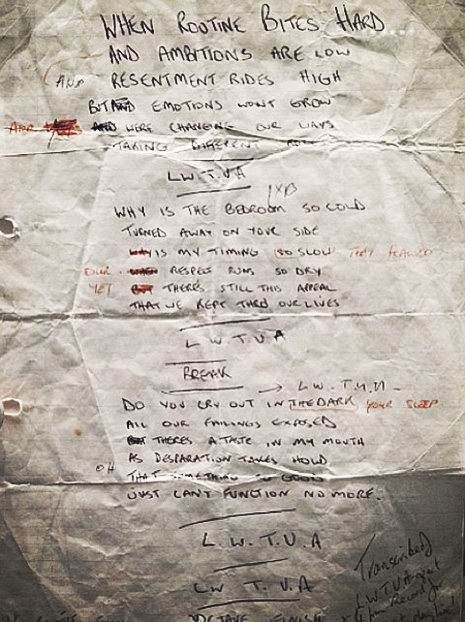 WHEN ROUTINE BITES HARD
AND AMBITIONS ARE LOW
AND RESENTMENT RIDES HIGH
BUT AND EMOTIONS WONT GROW
AND AND WERE CHANGING OUR WAYS
TAKING DIFFERENT
L.W.T.V.A
1XB
WHY IS THE BEDROOM SO COLD
TURNED AWAY ON YOUR SIDE
WHY IS MY TIMING SO SLOW THAT FLAWED
OUR WHEN RESPECT RUNS SO DRY
YET BUT THERES STILL THIS APPEAL
THAT WE KEPT THRU OUR LIVES
L W T V A
BREAK → L.W.T.
DO YOU CRY OUT IN THE DARK YOUR SLEEP
ALL OUR FAILINGS EXPOSED
BUT THERES A TASTE IN MY MOUTH
AS DESPARATION TAKES HOLD
OH THAT SOMETHING SO GOOD
JUST CANT FUNCTION NO MORE.
L.W.T.V.A
LW T.V.A
Transcribed
L.W.T.V.A
from Record
FINISH